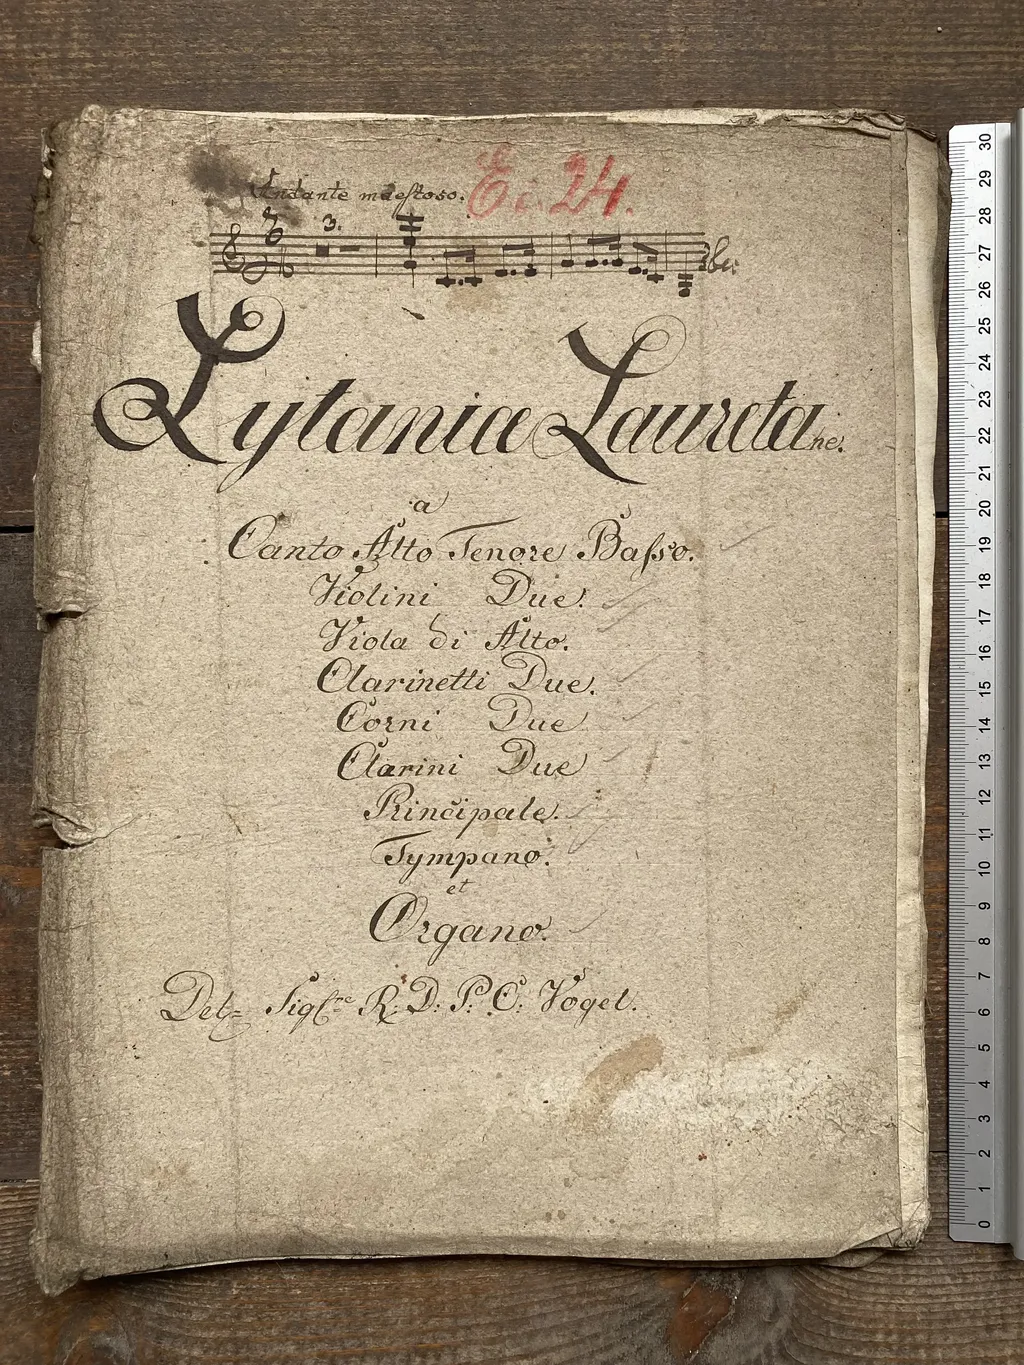 Andante maestoso. E i 24.
3.
Lytaniæ Lauretane.
a
Canto Alto Tenore Basso.
Violini Due.
Viola di Alto.
Clarinetti Due.
Corni Due
Clarini Due
Principale.
Tympano.
et
Organo.
Del= Sigre R: D. P. C. Vogel.
30
29
28
27
26
25
24
23
22
21
20
19
18
17
16
15
14
13
12
11
10
9
8
7
6
5
4
3
2
1
0